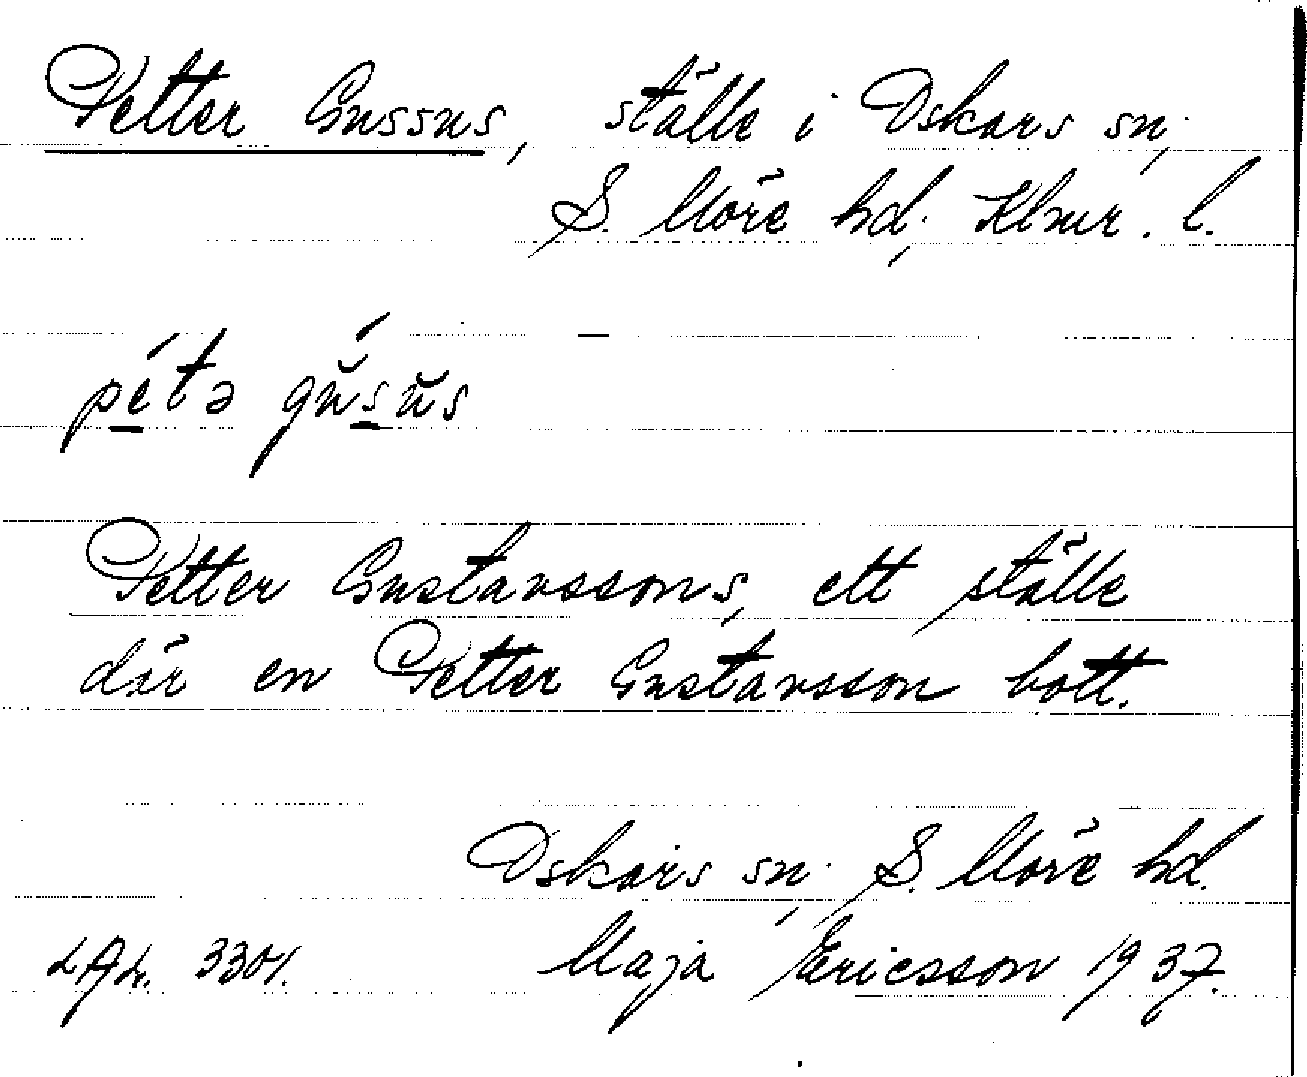 Petter Gussus, ställe i Oskars sn;
S. Möre hd; Klmr. l.
pétə gŭsŭs
Petter Gustavssons, ett ställe
där en Petter Gustavsson bott.
Oskars sn; S. Möre hd.
LAL. 3301. Maja Ericsson 1937.